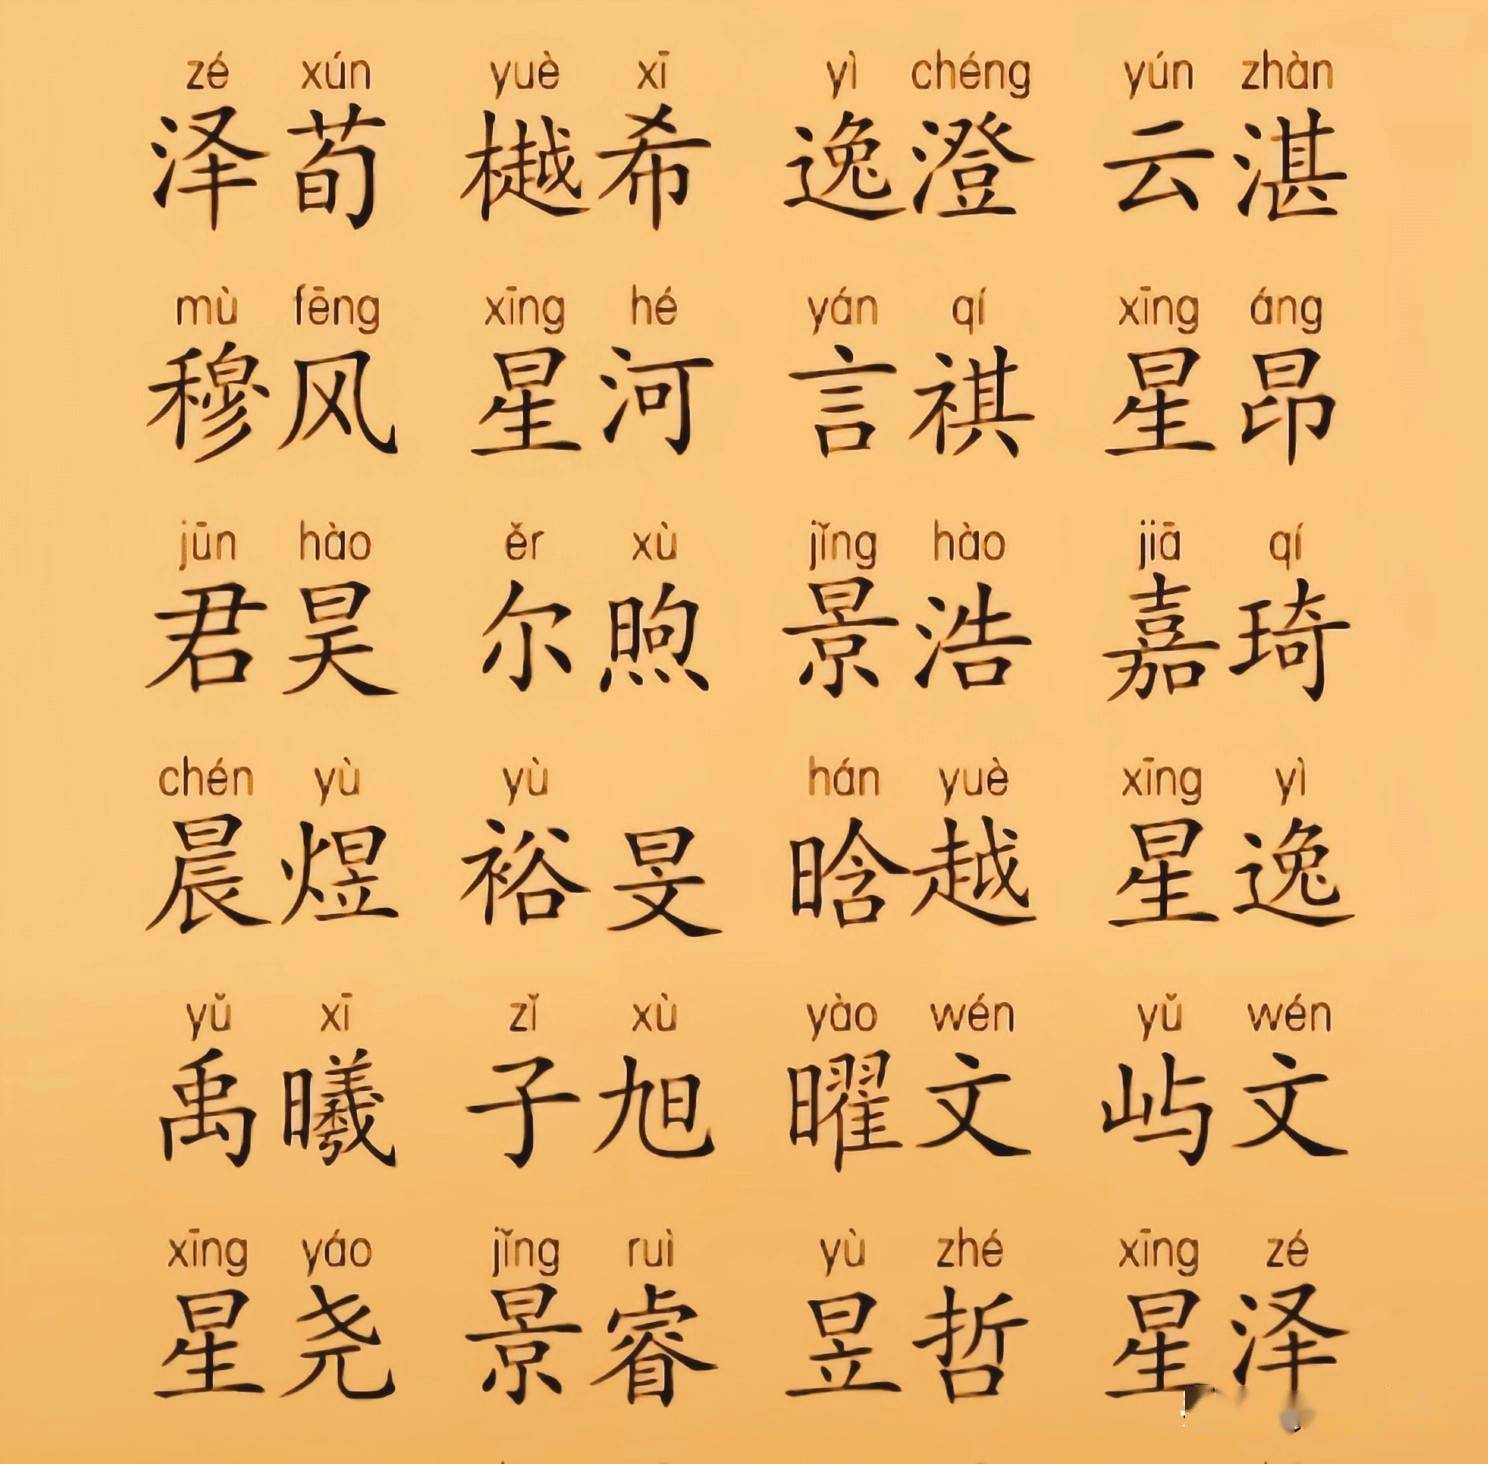 zé xún yuè xī yì chéng yún zhàn
泽荀 樾希 逸澄 云湛
mù fēng xīng hé yán qí xīng áng
穆风 星河 言祺 星昂
jūn hào ěr xù jǐng hào jiā qí
君昊 尔煦 景浩 嘉琦
chén yù yù hán yuè xīng yì
晨煜 裕旻 晗越 星逸
yǔ xī zǐ xù yào wén yǔ wén
禹曦 子旭 曜文 屿文
xīng yáo jǐng ruì yù zhé xīng zé
星尧 景睿 昱哲 星泽